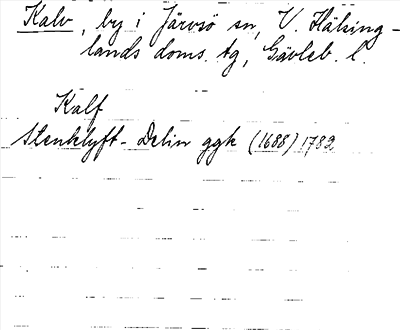 Kalv, by i Järvsö sn, V. Hälsing-
lands doms. tg, Gävleb. l.
Kalf
Stenklyft-Delin ggk (1688) 1782